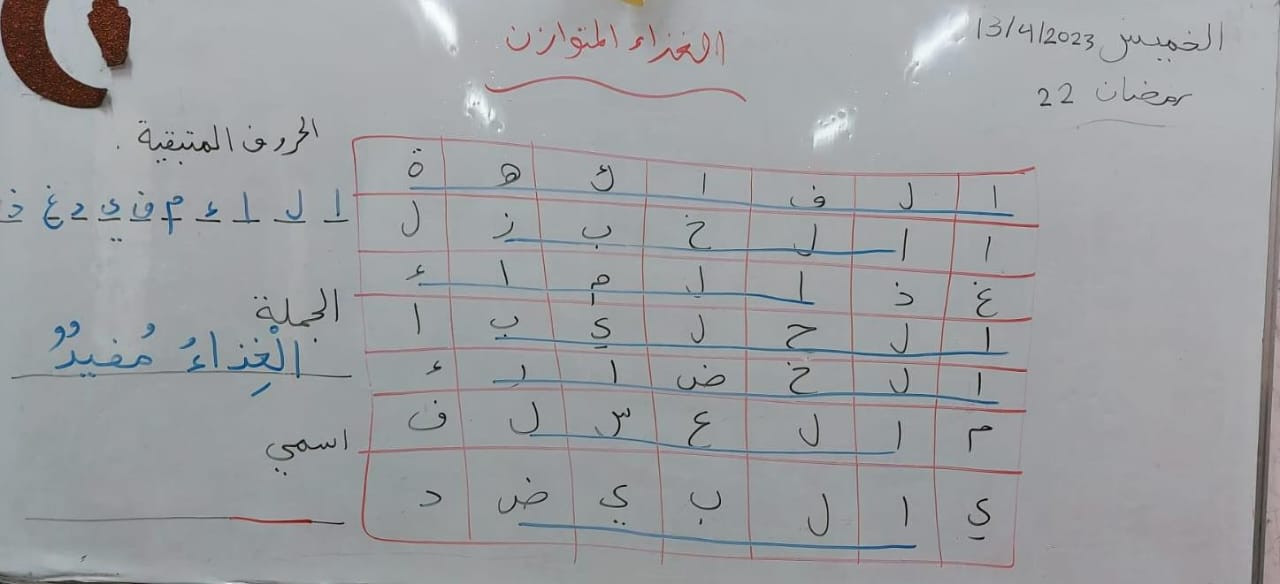 الخميس 13/4/2023
رمضان 22
الغذاء المتوازن
ا ل ف ا ك ه ة
ا ا ل خ ب ز ل
غ ذ ا ل م ا ء
ا ل ح ل ي ب ا
ا ل خ ض ا ر ء
م ا ل ع س ل ف
ي ا ل ب ي ض د
الحروف المتبقية .
ا ل ا ء م ف ي د غ ذ
الجملة
الْغِذاءُ مُفيدٌ
اسمي